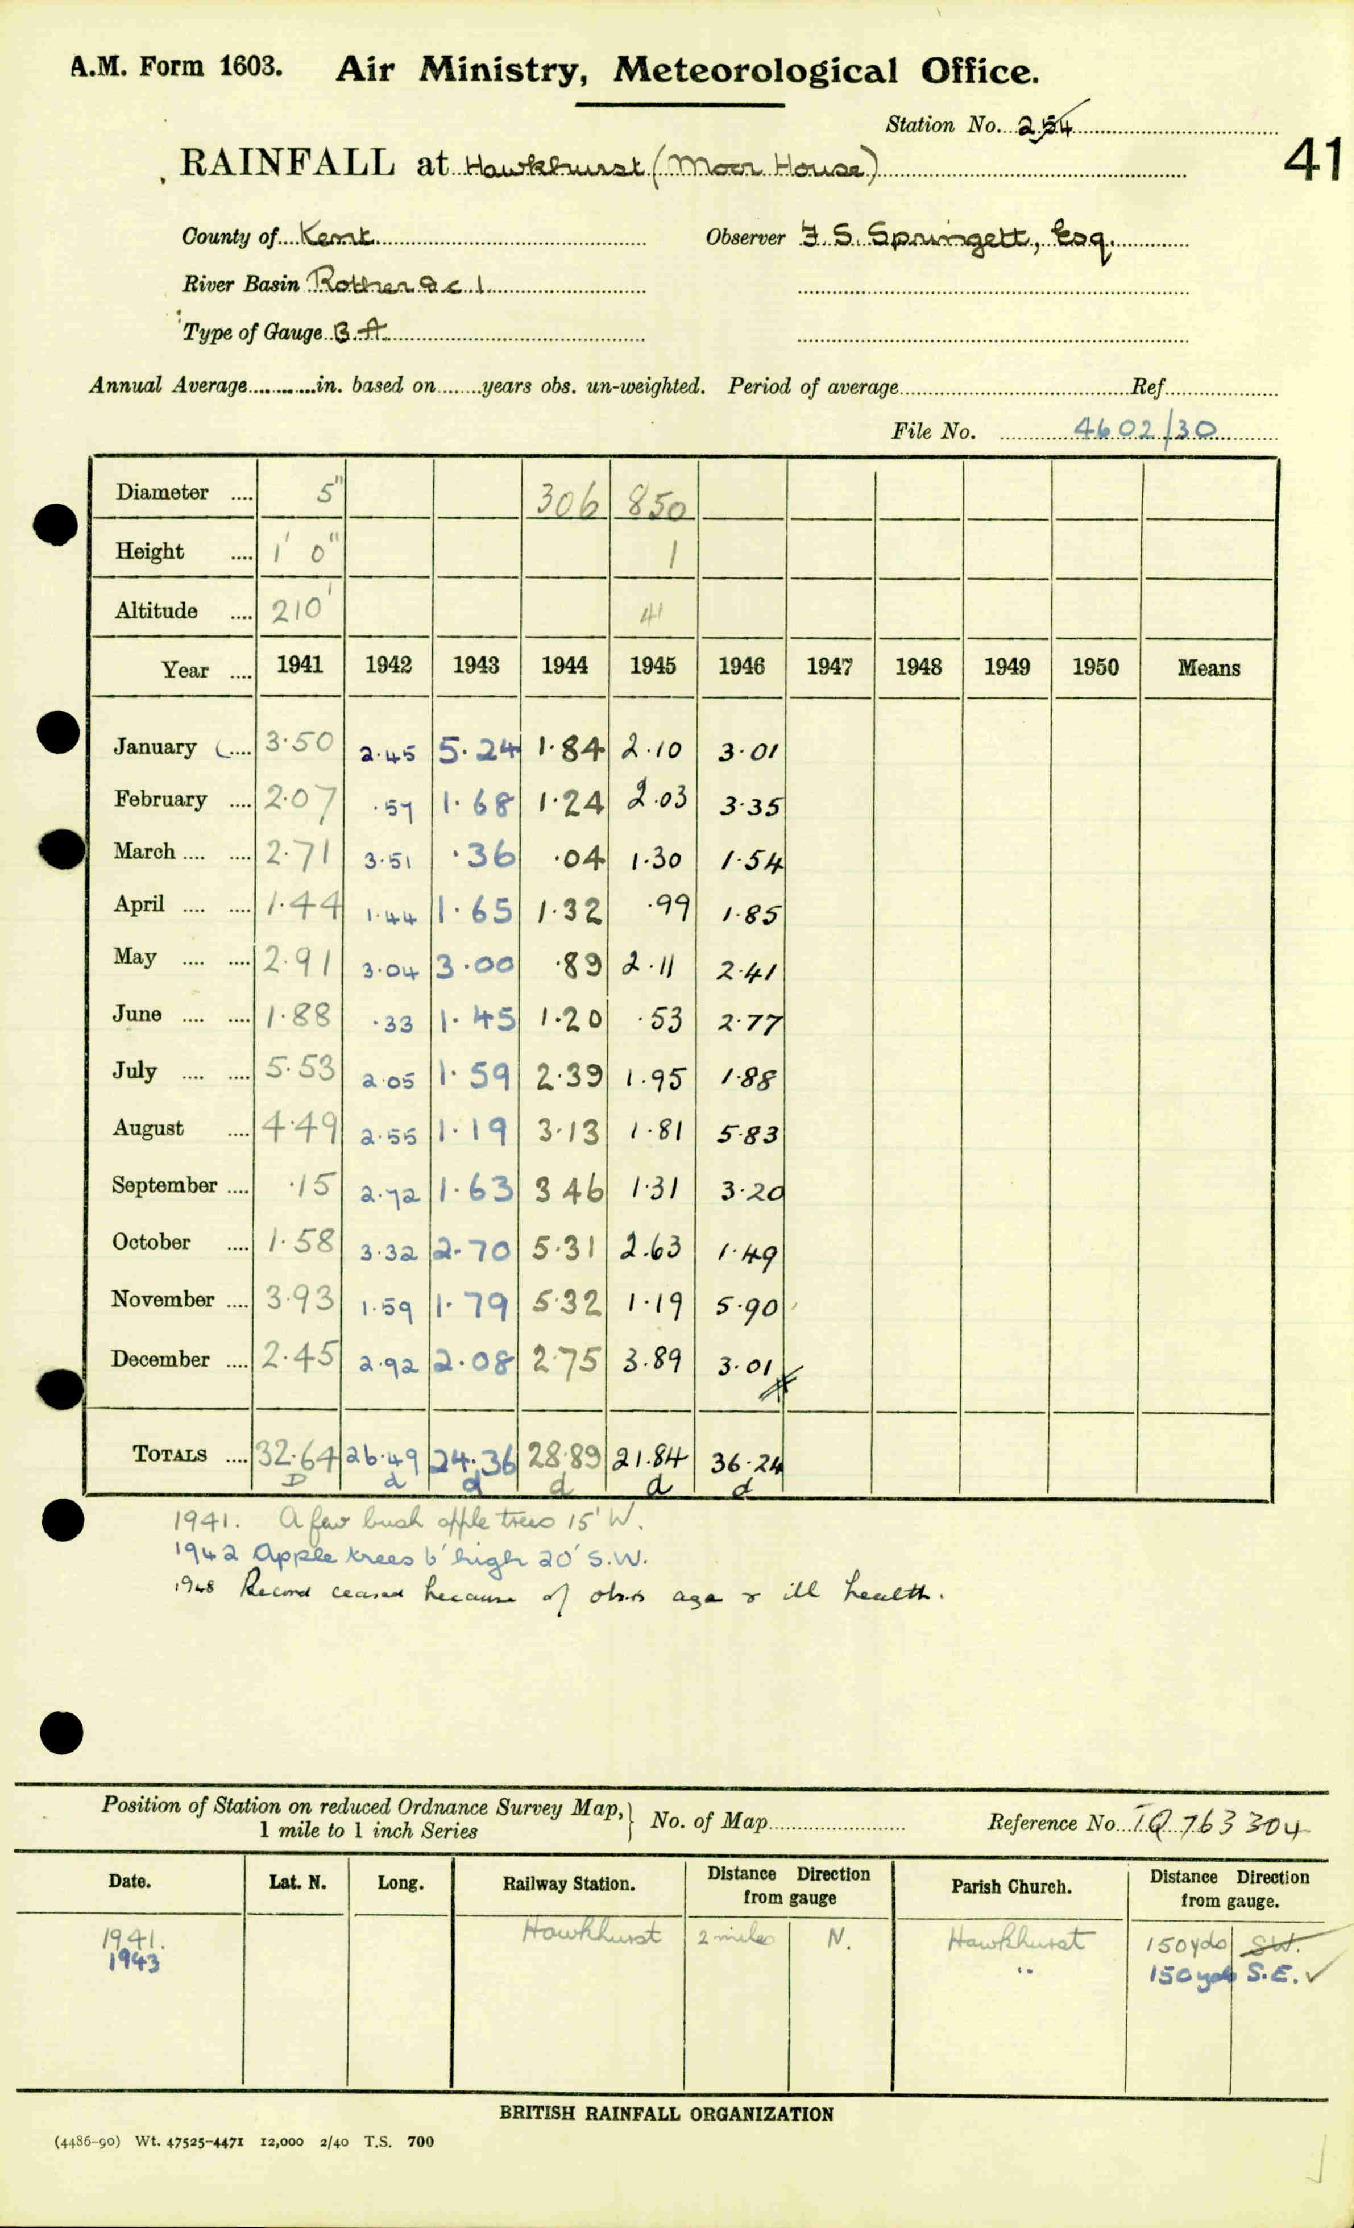 A.M. Form 1603. Air Ministry, Meteorological Office.
Station No. 254
41
RAINFALL at Hawkhurst (Moor House)
County of Kent Observer F. S. Springett, Esq.
River Basin Rother & c 1
Type of Gauge B.A.
Annual Average in. based on years obs. un-weighted. Period of average Ref.
File No. 4602/30
Diameter .... 5" 306 850
Height .... 1' 0" 1
Altitude .... 210' 41
Year .... 1941 1942 1943 1944 1945 1946 1947 1948 1949 1950 Means
January .... 3.50 2.45 5.24 1.84 2.10 3.01
February .... 2.07 .57 1.68 1.24 2.03 3.35
March .... .... 2.71 3.51 .36 .04 1.30 1.54
April .... .... 1.44 1.44 1.65 1.32 .99 1.85
May .... .... 2.91 3.04 3.00 .89 2.11 2.41
June .... .... 1.88 .33 1.45 1.20 .53 2.77
July .... .... 5.53 2.05 1.59 2.39 1.95 1.88
August .... 4.49 2.55 1.19 3.13 1.81 5.83
September .... .15 2.72 1.63 3 46 1.31 3.20
October .... 1.58 3.32 2.70 5.31 2.63 1.49
November .... 3.93 1.59 1.79 5.32 1.19 5.90
December .... 2.45 2.92 2.08 2.75 3.89 3.01
TOTALS .... 32.64 26.49 24.36 28.89 21.84 36.24
D d d d d d
1941. A few bush apple trees 15' W.
1942 Apple trees 6' high 20' S.W.
1948 Record ceased because of obs's age & ill health.
Position of Station on reduced Ordnance Survey Map, 1 mile to 1 inch Series } No. of Map Reference No. TQ 763 304
Date. Lat. N. Long. Railway Station. Distance Direction from gauge Parish Church. Distance Direction from gauge.
1941. Hawkhurst 2 miles N. Hawkhurst 150 yds S.W.
1943 " 150 yds S.E. ✓
BRITISH RAINFALL ORGANIZATION
(4486-90) Wt. 47525-4471 12,000 2/40 T.S. 700